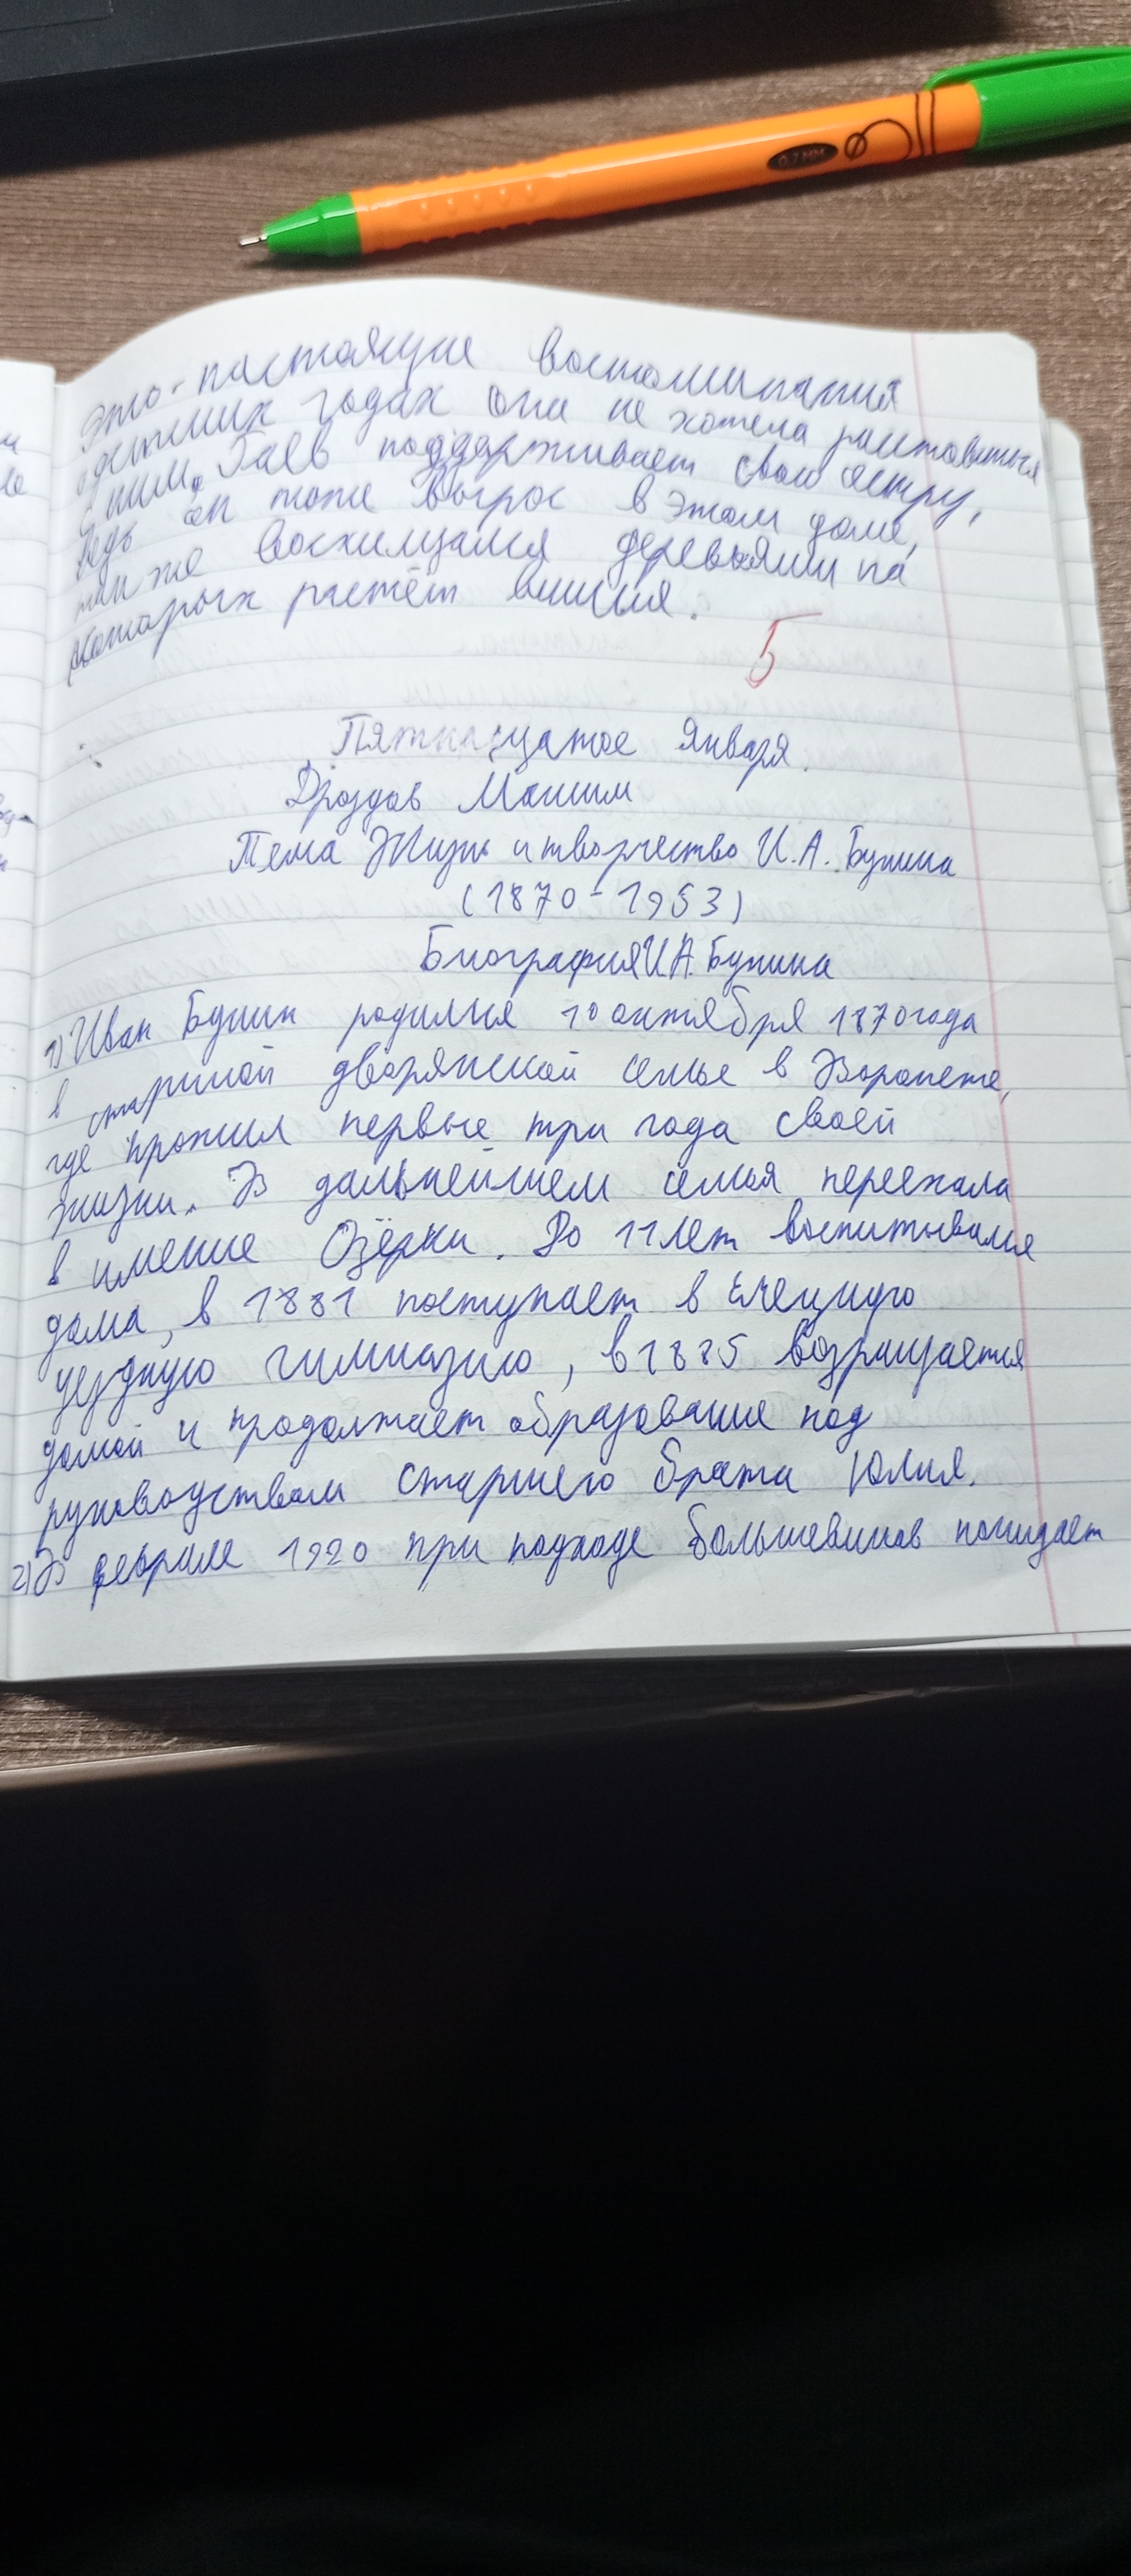 это - настоящие воспоминания
детских годах она не хотела расставаться
с ним. Гаев поддерживает свою сестру,
ведь он тоже вырос в этом доме,
так же восхищался деревьями на
которых растёт вишня.
5
Пятнадцатое января.
Дроздов Максим
Тема Жизнь и творчество И.А. Бунина
(1870-1953)
Биография И.А. Бунина
1) Иван Бунин родился 10 октября 1870 года
в старинной дворянской семье в Воронеже,
где прожил первые три года своей
жизни. В дальнейшем семья переехала
в имение Озёрки. До 11 лет воспитывался
дома, в 1881 поступает в Елецкую
уездную гимназию, в 1885 возращается
домой и продолжает образование под
руководством старшего брата Юлия.
2) В феврале 1920 при подходе большевиков покидает
0.7 мм